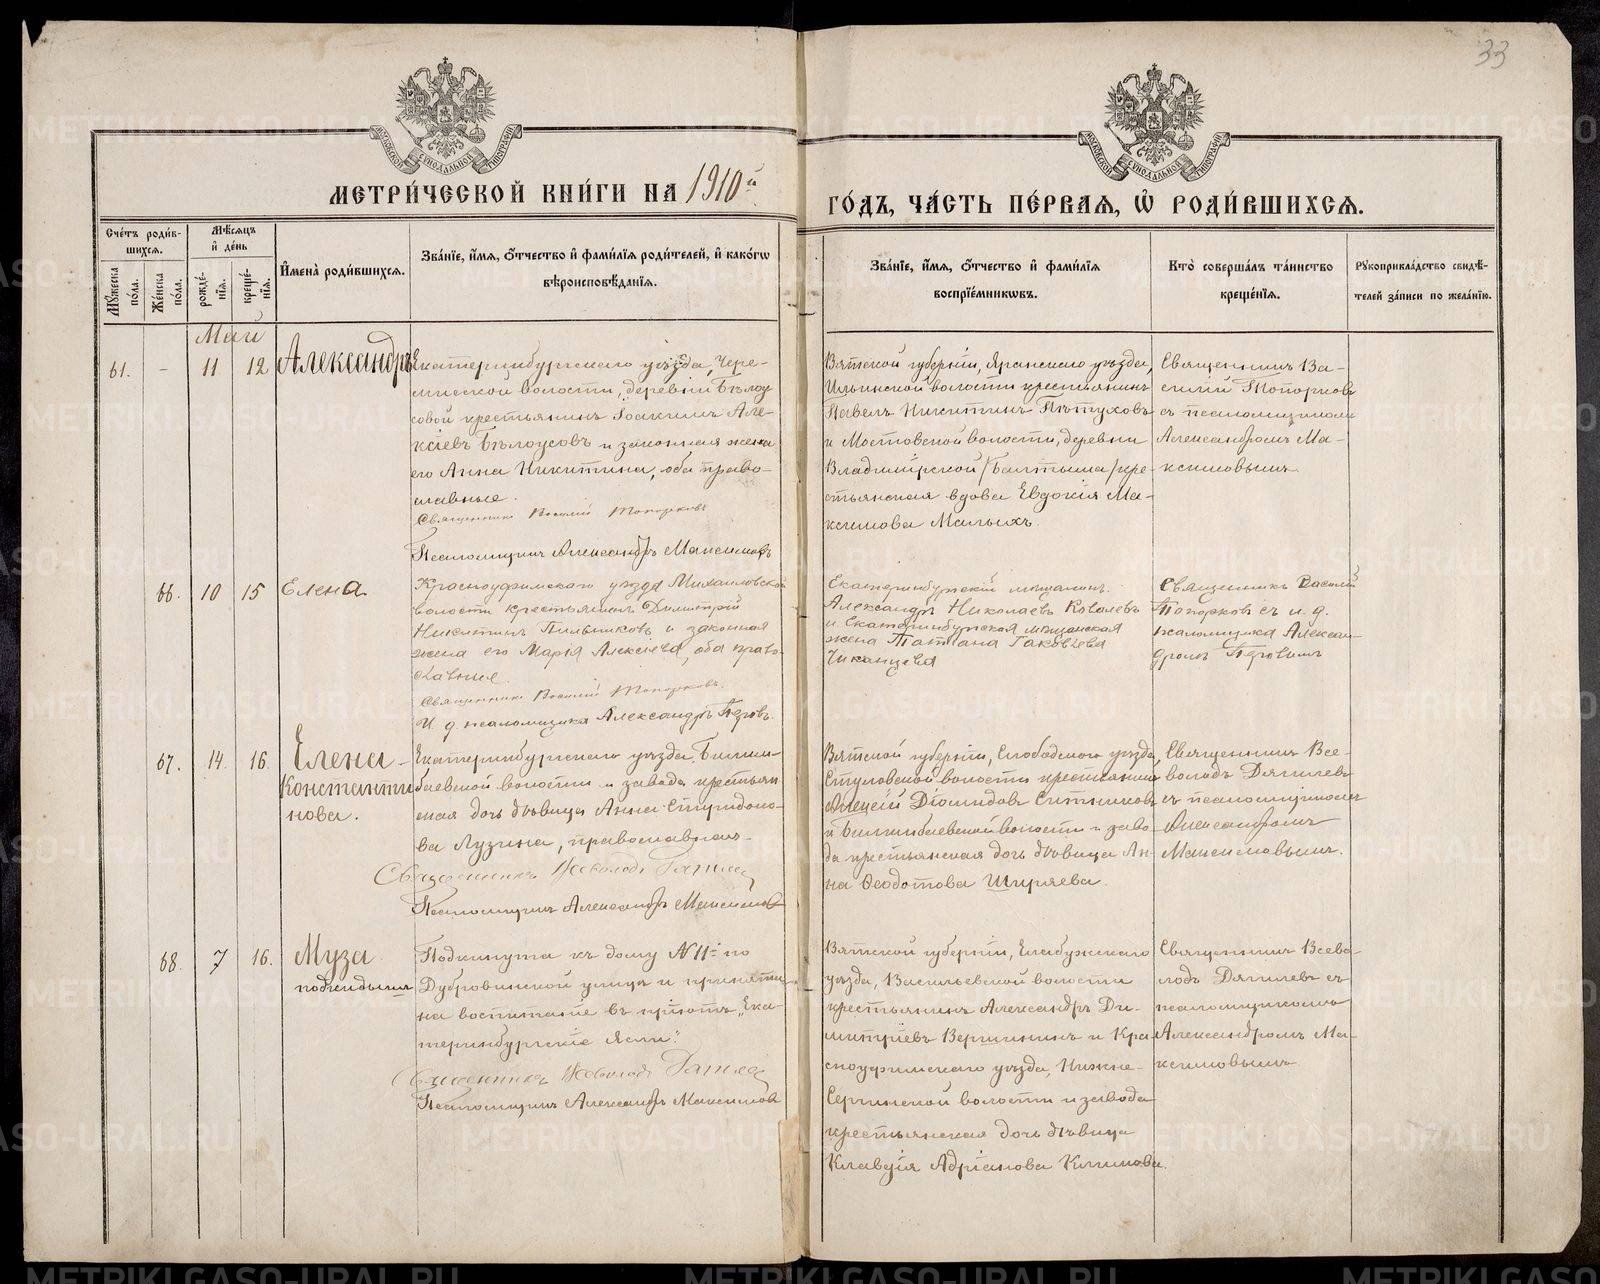 33
МЕТРИ́ЧЕСКОЙ КНИ́ГИ НА 1910й ГО́ДЪ, ЧА́СТЬ ПЕ́РВАЯ, Ѡ РОДИ́ВШИХСЯ.
Сче́тъ роди́вшихся.
Мꙋ́жеска по́ла.
Же́нска по́ла.
Мѣ́сяцъ и де́нь
рожде́нїя.
креще́нїя.
И҆мена̀ роди́вшихся.
Зва́нїе, и҆́мя, ѻ҆́тчество и҆ фами́лїя роди́телей, и҆ како́гѡ
вѣроисповѣ́данїя.
Зва́нїе, и҆́мя, ѻ҆́тчество и҆ фами́лїя
воспрїе́мникѡвъ.
Кто̀ соверша́лъ та́инство
креще́нїя.
Рꙋкоприкла́дство свидѣ́-
телей за́писи по жела́нїю.
Май
61. - 11 12 Александръ
Екатеринбургскаго уѣзда, Чере-
мисской волости, деревни Бѣлоу
совой крестьянинъ Іоакимъ Але-
ксіевъ Бѣлоусовъ и законная жена
его Анна Никитина, оба право-
славные.
Священникъ Василій Топорковъ
Псаломщикъ Александръ Максимовъ
Вятской губерніи, Яранскаго уѣзда,
Ильинской волости крестьянинъ
Павелъ Никитинъ Пѣтуховъ
и Мостовской волости, деревни
Владимірской /Балтыма/ кре-
стьянская вдова Евдокія Ма-
ксимова Малыхъ.
Священникъ Ва-
силій Топорковъ
съ псаломщикомъ
Александромъ Ма-
ксимовымъ
66. 10 15 Елена
Красноуфимскаго уѣзда Михайловской
волости крестьянинъ Димитрій
Никитинъ Пильниковъ и законная
жена его Марія Алексѣева, оба право-
славные.
Священникъ Василій Топорковъ.
И. д. псаломщика Александръ Перовъ.
Екатеринбургскій мѣщанинъ
Александръ Николаевъ Ковалевъ
и Екатеринбургская мѣщанская
жена Татіана Іаковлева
Чиканцева
Священникъ Василій
Топорковъ съ и. д.
псаломщика Алексан-
дромъ Перовымъ
67. 14. 16. Елена
Константи
нова.
Екатеринбургскаго уѣзда, Билим-
баевской волости и завода крестьян
ская дочь дѣвица Анна Спиридоно-
ва Лузина, православная.
Священникъ Всеволодъ Дягилев
Псаломщикъ Александръ Максимовъ
Вятской губерніи, Слободского уѣзда,
Стуловской волости крестьянинъ
Алексій Діомидовъ Ситниковъ
и Билимбаевской волости и заво-
да крестьянская дочь дѣвица Ан-
на Ѳеодотова Ширяева.
Священникъ Все-
володъ Дягилевъ
съ псаломщикомъ
Александромъ
Максимовымъ.
68. 7 16. Муза
подкидышъ
Подкинута къ дому № 11й по
Дубровинской улицѣ и принята
на воспитаніе въ пріютъ „Ека-
теринбургскіе Ясли".
Священникъ Всеволодъ Дягилев
Псаломщикъ Александръ Максимовъ
Вятской губерніи, Елабужскаго
уѣзда, Васильевской волости
крестьянинъ Александръ Ди-
митріевъ Вершининъ и Кра-
сноуфимскаго уѣзда, Нижне-
Сергинской волости и завода
крестьянская дочь дѣвица
Клавдія Адріанова Климова.
Священникъ Всево-
лодъ Дягилевъ съ
псаломщикомъ
Александромъ Ма-
ксимовымъ
METRIKI.GASO-URAL.RU